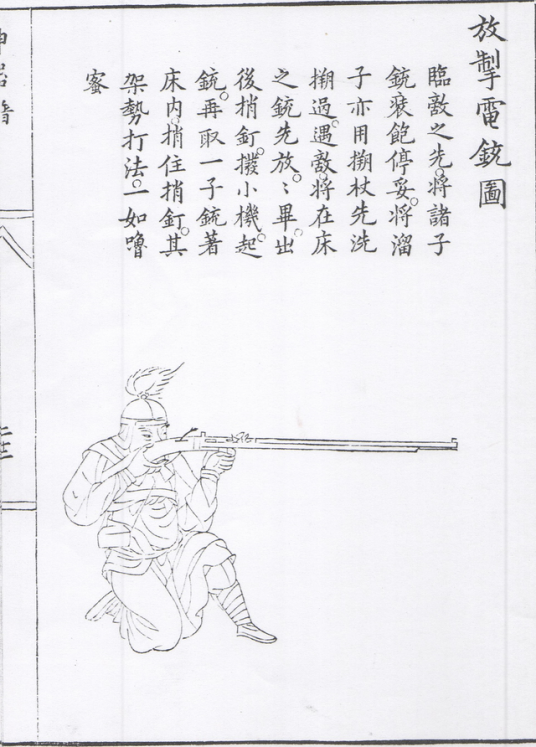 放掣電銃圖
臨敵之先。將諸子
銃裝飽停妥。將溜
子亦用搠杖先洗
搠過。遇敵。將在床
之銃先放。〻畢。出
後梢釘。撥小機。起
銃。再取一子銃著
床內。梢住梢釘。其
架勢打法。一如嚕
蜜